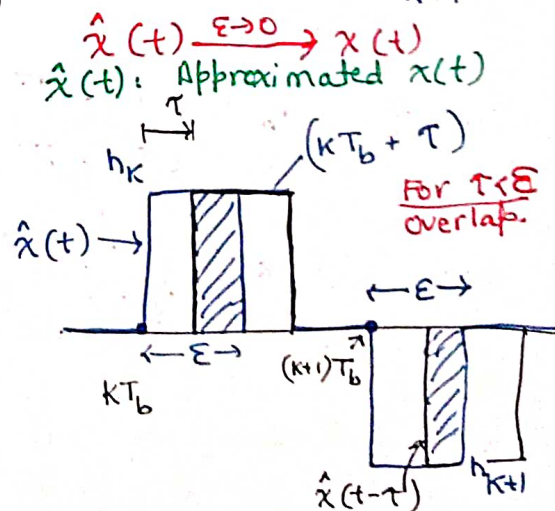 x̂(t) ε→0 → x(t)
x̂(t): Approximated x(t)
τ
h_K
(KT_b + τ)
For τ<ε
overlap.
x̂(t) →
← ε →
← ε →
KT_b
(K+1)T_b
x̂(t-τ)
h_K+1